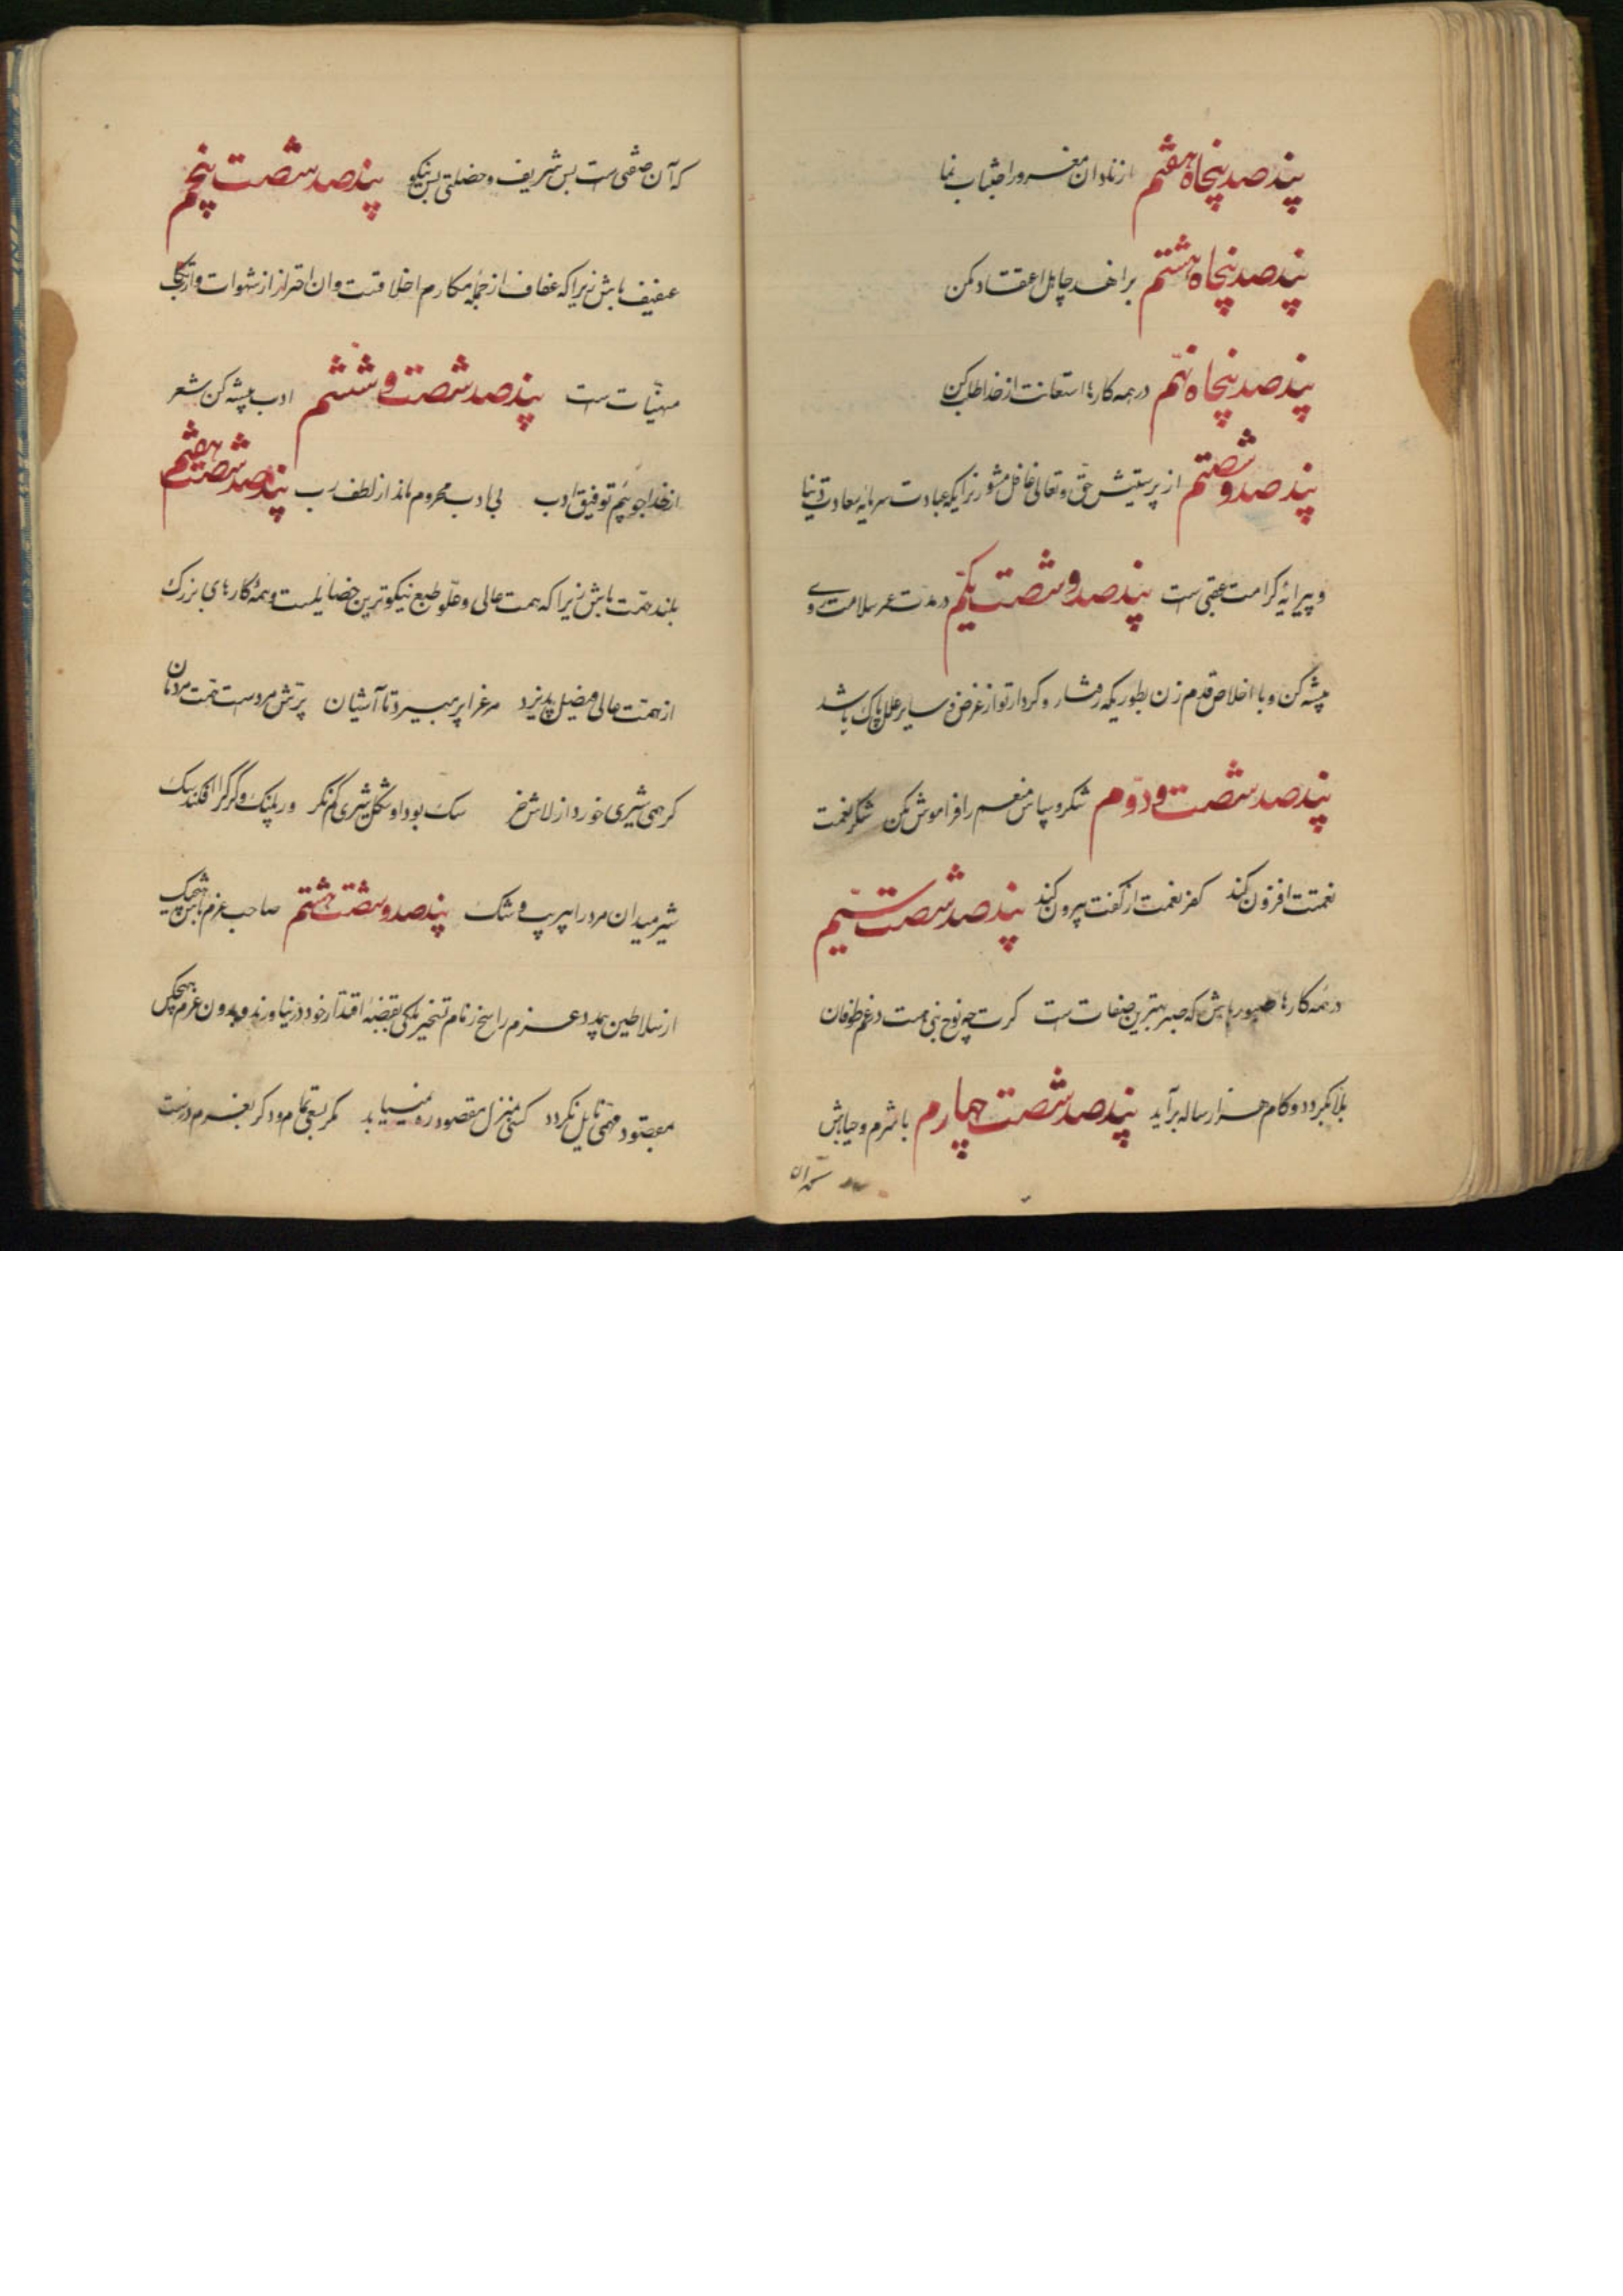 پند صد پنجاه هفتم از نادان مغرور اجتناب نما
پند صد پنجاه هشتم بزاهد جاهل اعتقاد مکن
پند صد پنجاه نهم در همه کارها استعانت از خدا طلب کن
پند صد و شصتم از پرستش حق و تعالی غافل مشو زیرا که عبادت سرمایه سعادت دنیا
و پیرایه کرامت عقبی است پند صد و شصت یکم در مدت عمر سلامت روی
پیشه کن و با اخلاص قدم زن بطوریکه رفتار و کردار تو از غرض و سایر علل پاک باشد
پند صد شصت و دوم شکر و سپاس منعم را فراموش مکن شکر نعمت
نعمتت افزون کند کفر نعمت از کفت بیرون کند پند صد شصت سیم
در همه کارها صبور باش که صبر بهترین صفات است گرت چو نوح نبی هست در غم طوفان
بلا بگردد و کام هزار ساله برآید پند صد شصت چهارم با شرم و حیا باش
که آن صفتی است بس شریف و خصلتی بس نیکو پند صد شصت پنجم
عفیف باش زیرا که عفاف از جمله مکارم اخلاقست و آن احتراز از شهوات و ارتکاب
منهیات است پند صد شصت و ششم ادب پیشه کن شعر
از خدا جوئیم توفیق ادب بی ادب محروم ماند از لطف رب پند صد شصت هفتم
بلند همت باش زیرا که همت عالی و علو طبع نیکوترین خصایلست و همه کارهای بزرک
از همت عالی فیصل پذیرد مرغ را پر میبرد تا آشیان پرش مردست همت مردمان
گر همی شیری خورد از لاش خر سک بود او شکل شیری کم نگر ور پلنک و گرگ را افکند سک
شیر میدان مر ورا بی ریب و شک پند صد و شصت هشتم صاحب عزم باش هیچیک
از سلاطین بمدد عزم راسخ زمام تسخیر ملکی بقبضه اقتدار خود در نیاورند و بدون عزم هیچکس
بمقصود مهمی نایل نگردد کسی بمنزل مقصود ره نمییابد مگر بسعی تمام و دگر بعزم درست